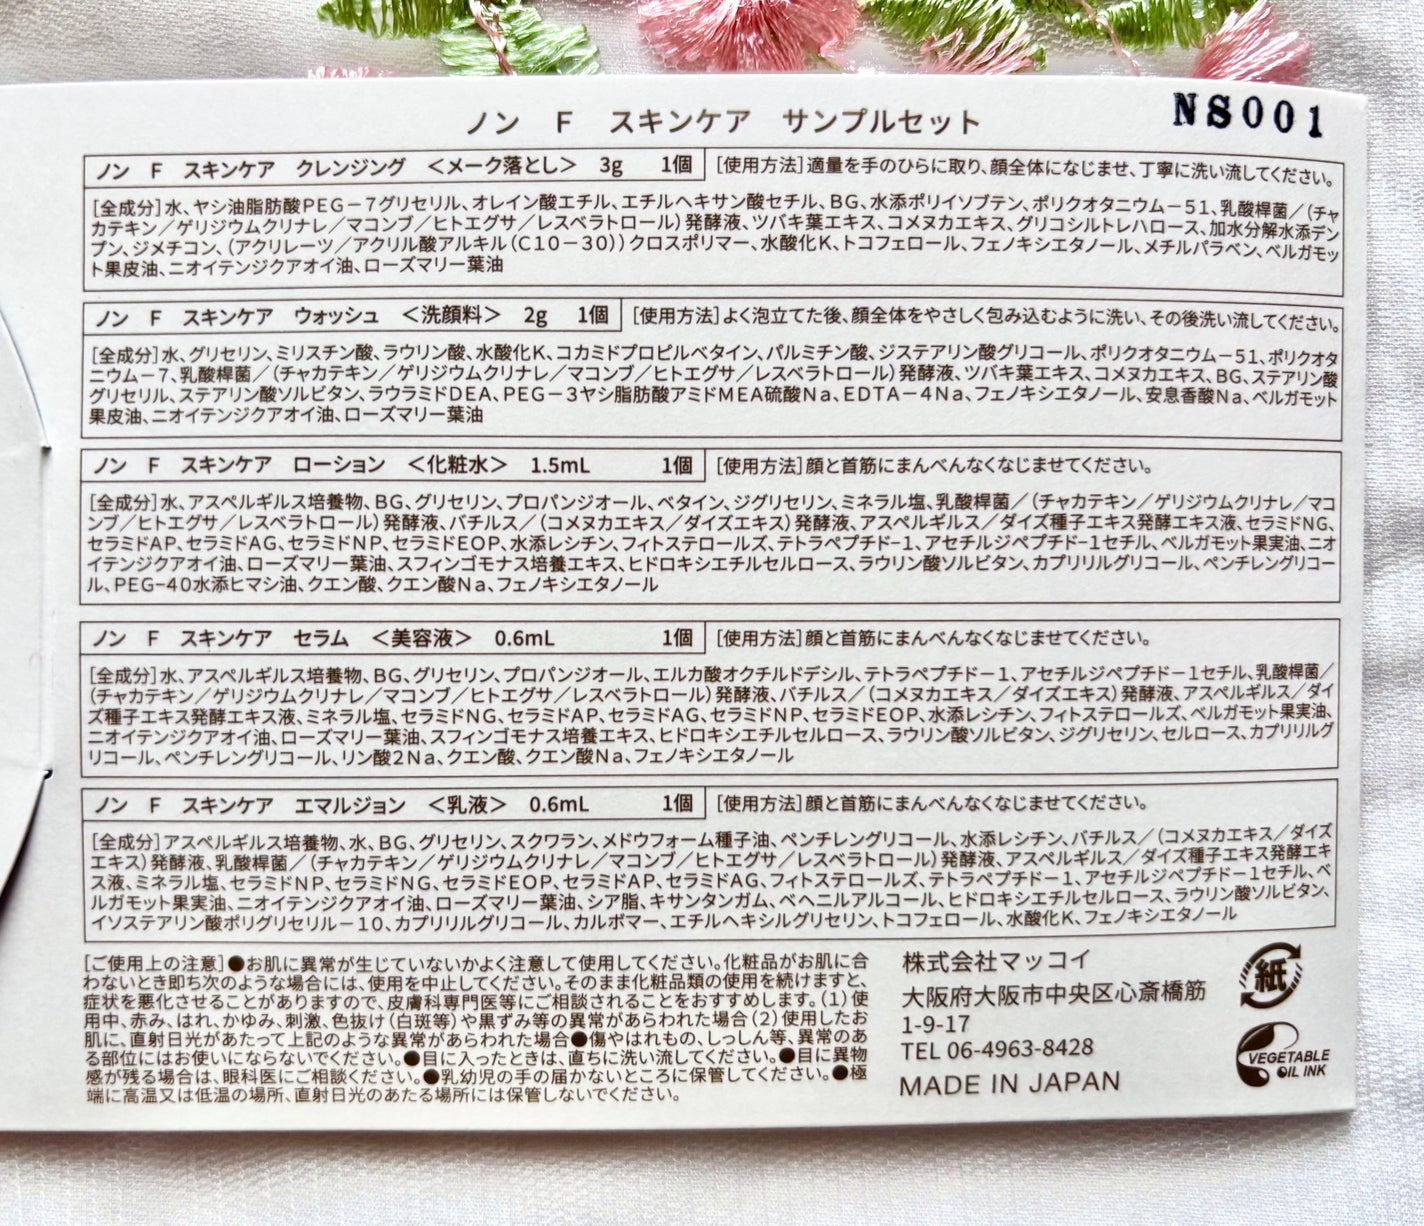 ノン F スキンケア サンプルセット
NS001
ノン F スキンケア クレンジング ＜メーク落とし＞ 3g 1個
[使用方法]適量を手のひらに取り、顔全体になじませ、丁寧に洗い流してください。
[全成分]水、ヤシ油脂肪酸PEG－7グリセリル、オレイン酸エチル、エチルヘキサン酸セチル、BG、水添ポリイソブテン、ポリクオタニウム－51、乳酸桿菌／(チャ
カテキン／ゲリジウムクリナレ／マコンブ／ヒトエグサ／レスベラトロール)発酵液、ツバキ葉エキス、コメヌカエキス、グリコシルトレハロース、加水分解水添デン
プン、ジメチコン、(アクリレーツ／アクリル酸アルキル(C10－30))クロスポリマー、水酸化K、トコフェロール、フェノキシエタノール、メチルパラベン、ベルガモッ
ト果皮油、ニオイテンジクアオイ油、ローズマリー葉油
ノン F スキンケア ウォッシュ ＜洗顔料＞ 2g 1個
[使用方法]よく泡立てた後、顔全体をやさしく包み込むように洗い、その後洗い流してください。
[全成分]水、グリセリン、ミリスチン酸、ラウリン酸、水酸化K、コカミドプロピルベタイン、パルミチン酸、ジステアリン酸グリコール、ポリクオタニウム－51、ポリクオタ
ニウム－7、乳酸桿菌／(チャカテキン／ゲリジウムクリナレ／マコンブ／ヒトエグサ／レスベラトロール)発酵液、ツバキ葉エキス、コメヌカエキス、BG、ステアリン酸
グリセリル、ステアリン酸ソルビタン、ラウラミドDEA、PEG－3ヤシ脂肪酸アミドMEA硫酸Na、EDTA－4Na、フェノキシエタノール、安息香酸Na、ベルガモット
果皮油、ニオイテンジクアオイ油、ローズマリー葉油
ノン F スキンケア ローション ＜化粧水＞ 1.5mL 1個
[使用方法]顔と首筋にまんべんなくなじませてください。
[全成分]水、アスペルギルス培養物、BG、グリセリン、プロパンジオール、ベタイン、ジグリセリン、ミネラル塩、乳酸桿菌／(チャカテキン／ゲリジウムクリナレ／マコ
ンブ／ヒトエグサ／レスベラトロール)発酵液、バチルス／(コメヌカエキス／ダイズエキス)発酵液、アスペルギルス／ダイズ種子エキス発酵エキス液、セラミドNG、
セラミドAP、セラミドAG、セラミドNP、セラミドEOP、水添レシチン、フィトステロールズ、テトラペプチド-1、アセチルジペプチド-1セチル、ベルガモット果実油、ニオ
イテンジクアオイ油、ローズマリー葉油、スフィンゴモナス培養エキス、ヒドロキシエチルセルロース、ラウリン酸ソルビタン、カプリリルグリコール、ペンチレングリコー
ル、PEG-40水添ヒマシ油、クエン酸、クエン酸Na、フェノキシエタノール
ノン F スキンケア セラム ＜美容液＞ 0.6mL 1個
[使用方法]顔と首筋にまんべんなくなじませてください。
[全成分]水、アスペルギルス培養物、BG、グリセリン、プロパンジオール、エルカ酸オクチルドデシル、テトラペプチド－1、アセチルジペプチド－1セチル、乳酸桿菌／
(チャカテキン／ゲリジウムクリナレ／マコンブ／ヒトエグサ／レスベラトロール)発酵液、バチルス／(コメヌカエキス／ダイズエキス)発酵液、アスペルギルス／ダイ
ズ種子エキス発酵エキス液、ミネラル塩、セラミドNG、セラミドAP、セラミドAG、セラミドNP、セラミドEOP、水添レシチン、フィトステロールズ、ベルガモット果実油、
ニオイテンジクアオイ油、ローズマリー葉油、スフィンゴモナス培養エキス、ヒドロキシエチルセルロース、ラウリン酸ソルビタン、ジグリセリン、セルロース、カプリリルグ
リコール、ペンチレングリコール、リン酸2Na、クエン酸、クエン酸Na、フェノキシエタノール
ノン F スキンケア エマルジョン ＜乳液＞ 0.6mL 1個
[使用方法]顔と首筋にまんべんなくなじませてください。
[全成分]アスペルギルス培養物、水、BG、グリセリン、スクワラン、メドウフォーム種子油、ペンチレングリコール、水添レシチン、バチルス／(コメヌカエキス／ダイズ
エキス)発酵液、乳酸桿菌／(チャカテキン／ゲリジウムクリナレ／マコンブ／ヒトエグサ／レスベラトロール)発酵液、アスペルギルス／ダイズ種子エキス発酵エキ
ス液、ミネラル塩、セラミドNP、セラミドNG、セラミドEOP、セラミドAP、セラミドAG、フィトステロールズ、テトラペプチド－1、アセチルジペプチド－1セチル、ベ
ルガモット果実油、ニオイテンジクアオイ油、ローズマリー葉油、シア脂、キサンタンガム、ベヘニルアルコール、ヒドロキシエチルセルロース、ラウリン酸ソルビタン、
イソステアリン酸ポリグリセリル－10、カプリリルグリコール、カルボマー、エチルヘキシルグリセリン、トコフェロール、水酸化K、フェノキシエタノール
[ご使用上の注意]●お肌に異常が生じていないかよく注意して使用してください。化粧品がお肌に合
わないとき即ち次のような場合には、使用を中止してください。そのまま化粧品類の使用を続けますと、
症状を悪化させることがありますので、皮膚科専門医等にご相談されることをおすすめします。(1)使
用中、赤み、はれ、かゆみ、刺激、色抜け(白斑等)や黒ずみ等の異常があらわれた場合(2)使用したお
肌に、直射日光があたって上記のような異常があらわれた場合●傷やはれもの、しっしん等、異常のあ
る部位にはお使いにならないでください。●目に入ったときは、直ちに洗い流してください。●目に異物
感が残る場合は、眼科医にご相談ください。●乳幼児の手の届かないところに保管してください。●極
端に高温又は低温の場所、直射日光のあたる場所には保管しないでください。
株式会社マッコイ
大阪府大阪市中央区心斎橋筋
1-9-17
TEL 06-4963-8428
MADE IN JAPAN
紙
VEGETABLE
OIL INK